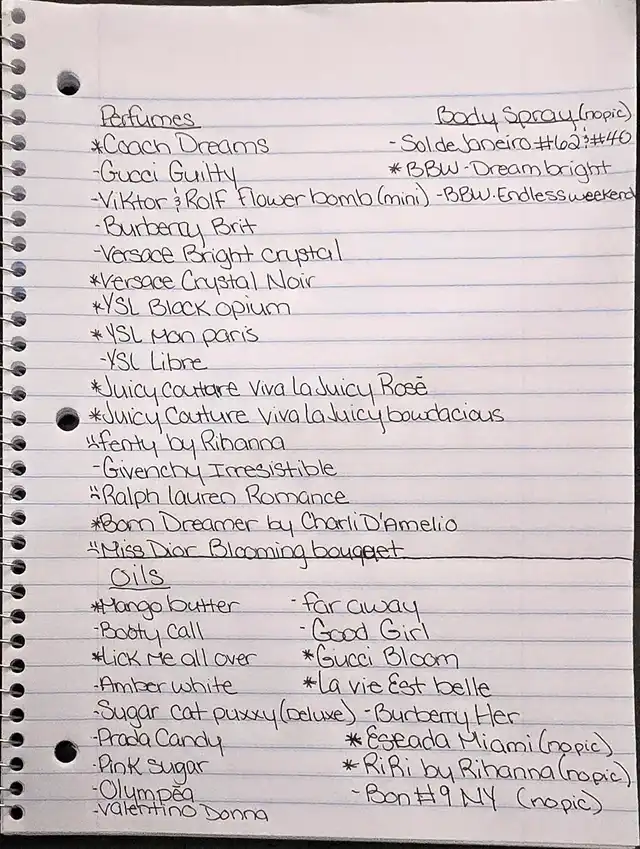 Perfumes
*Coach Dreams
-Gucci Guilty
-Viktor & Rolf Flowerbomb (mini)
-Burberry Brit
-Versace Bright crystal
*Versace Crystal Noir
*YSL Black opium
*YSL Mon paris
-YSL Libre
*Juicy couture Viva La Juicy Rosē
*Juicy Couture Viva la Juicy bowdacious
*fenty by Rihanna
-Givenchy Irresistible
*Ralph lauren Romance
*Born Dreamer by Charli D'Amelio
*Miss Dior Blooming bouqet
Body Spray (nopic)
-Sol de Janeiro #62 & #40
*BBW-Dream bright
-BBW.Endless weekend
Oils
*Mango butter
-Booty Call
*Lick Me all over
-Amber white
-Sugar cat puxxy (Deluxe)
-Prada Candy
-Pink Sugar
-Olympēa
-Valentino Donna
-far away
-Good Girl
*Gucci Bloom
*La vie Est belle
-Burberry Her
*Eseada Miami (nopic)
*RiRi by Rihanna (nopic)
-Bon #9 NY (nopic)